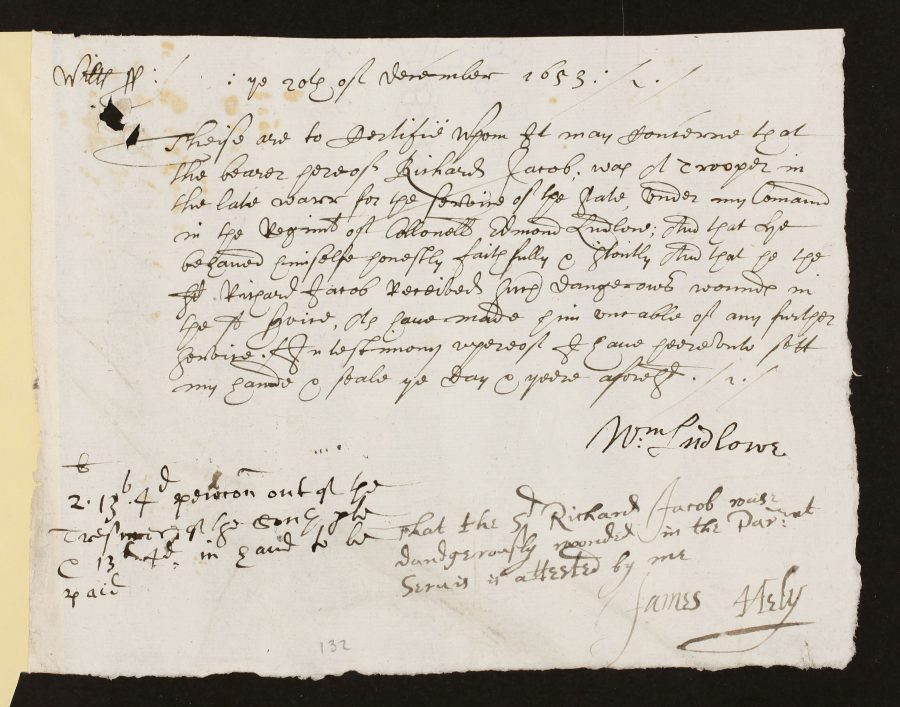 Wilts ss:
: ye 20th of december 1653 :
Theise are to Certifie whom It may Concerne that
the bearer hereof Richard Jacob, was A Trooper in
the late warr for the service of the State, under my Comand
in the Regimt of Collonell Edmond Ludlow; And that He
behaved himselfe honestly faithfully & stoutly And that he the
sd Richard Jacob Received such dangerows wounds in
the sd service, As have made him uncable of any further
service. In testimony whereof I have heereunto sett
my hande & seale ye day & yeere aforesd.
Wm Ludlowe
2. 13s. 4d pencon out of the
Tresurer of the County
& 13s 4d in hand to be
paid
That the Sd Richard Jacob was
dandgerously wonded in the Parmt
Servis is attested by me
James Hely
132